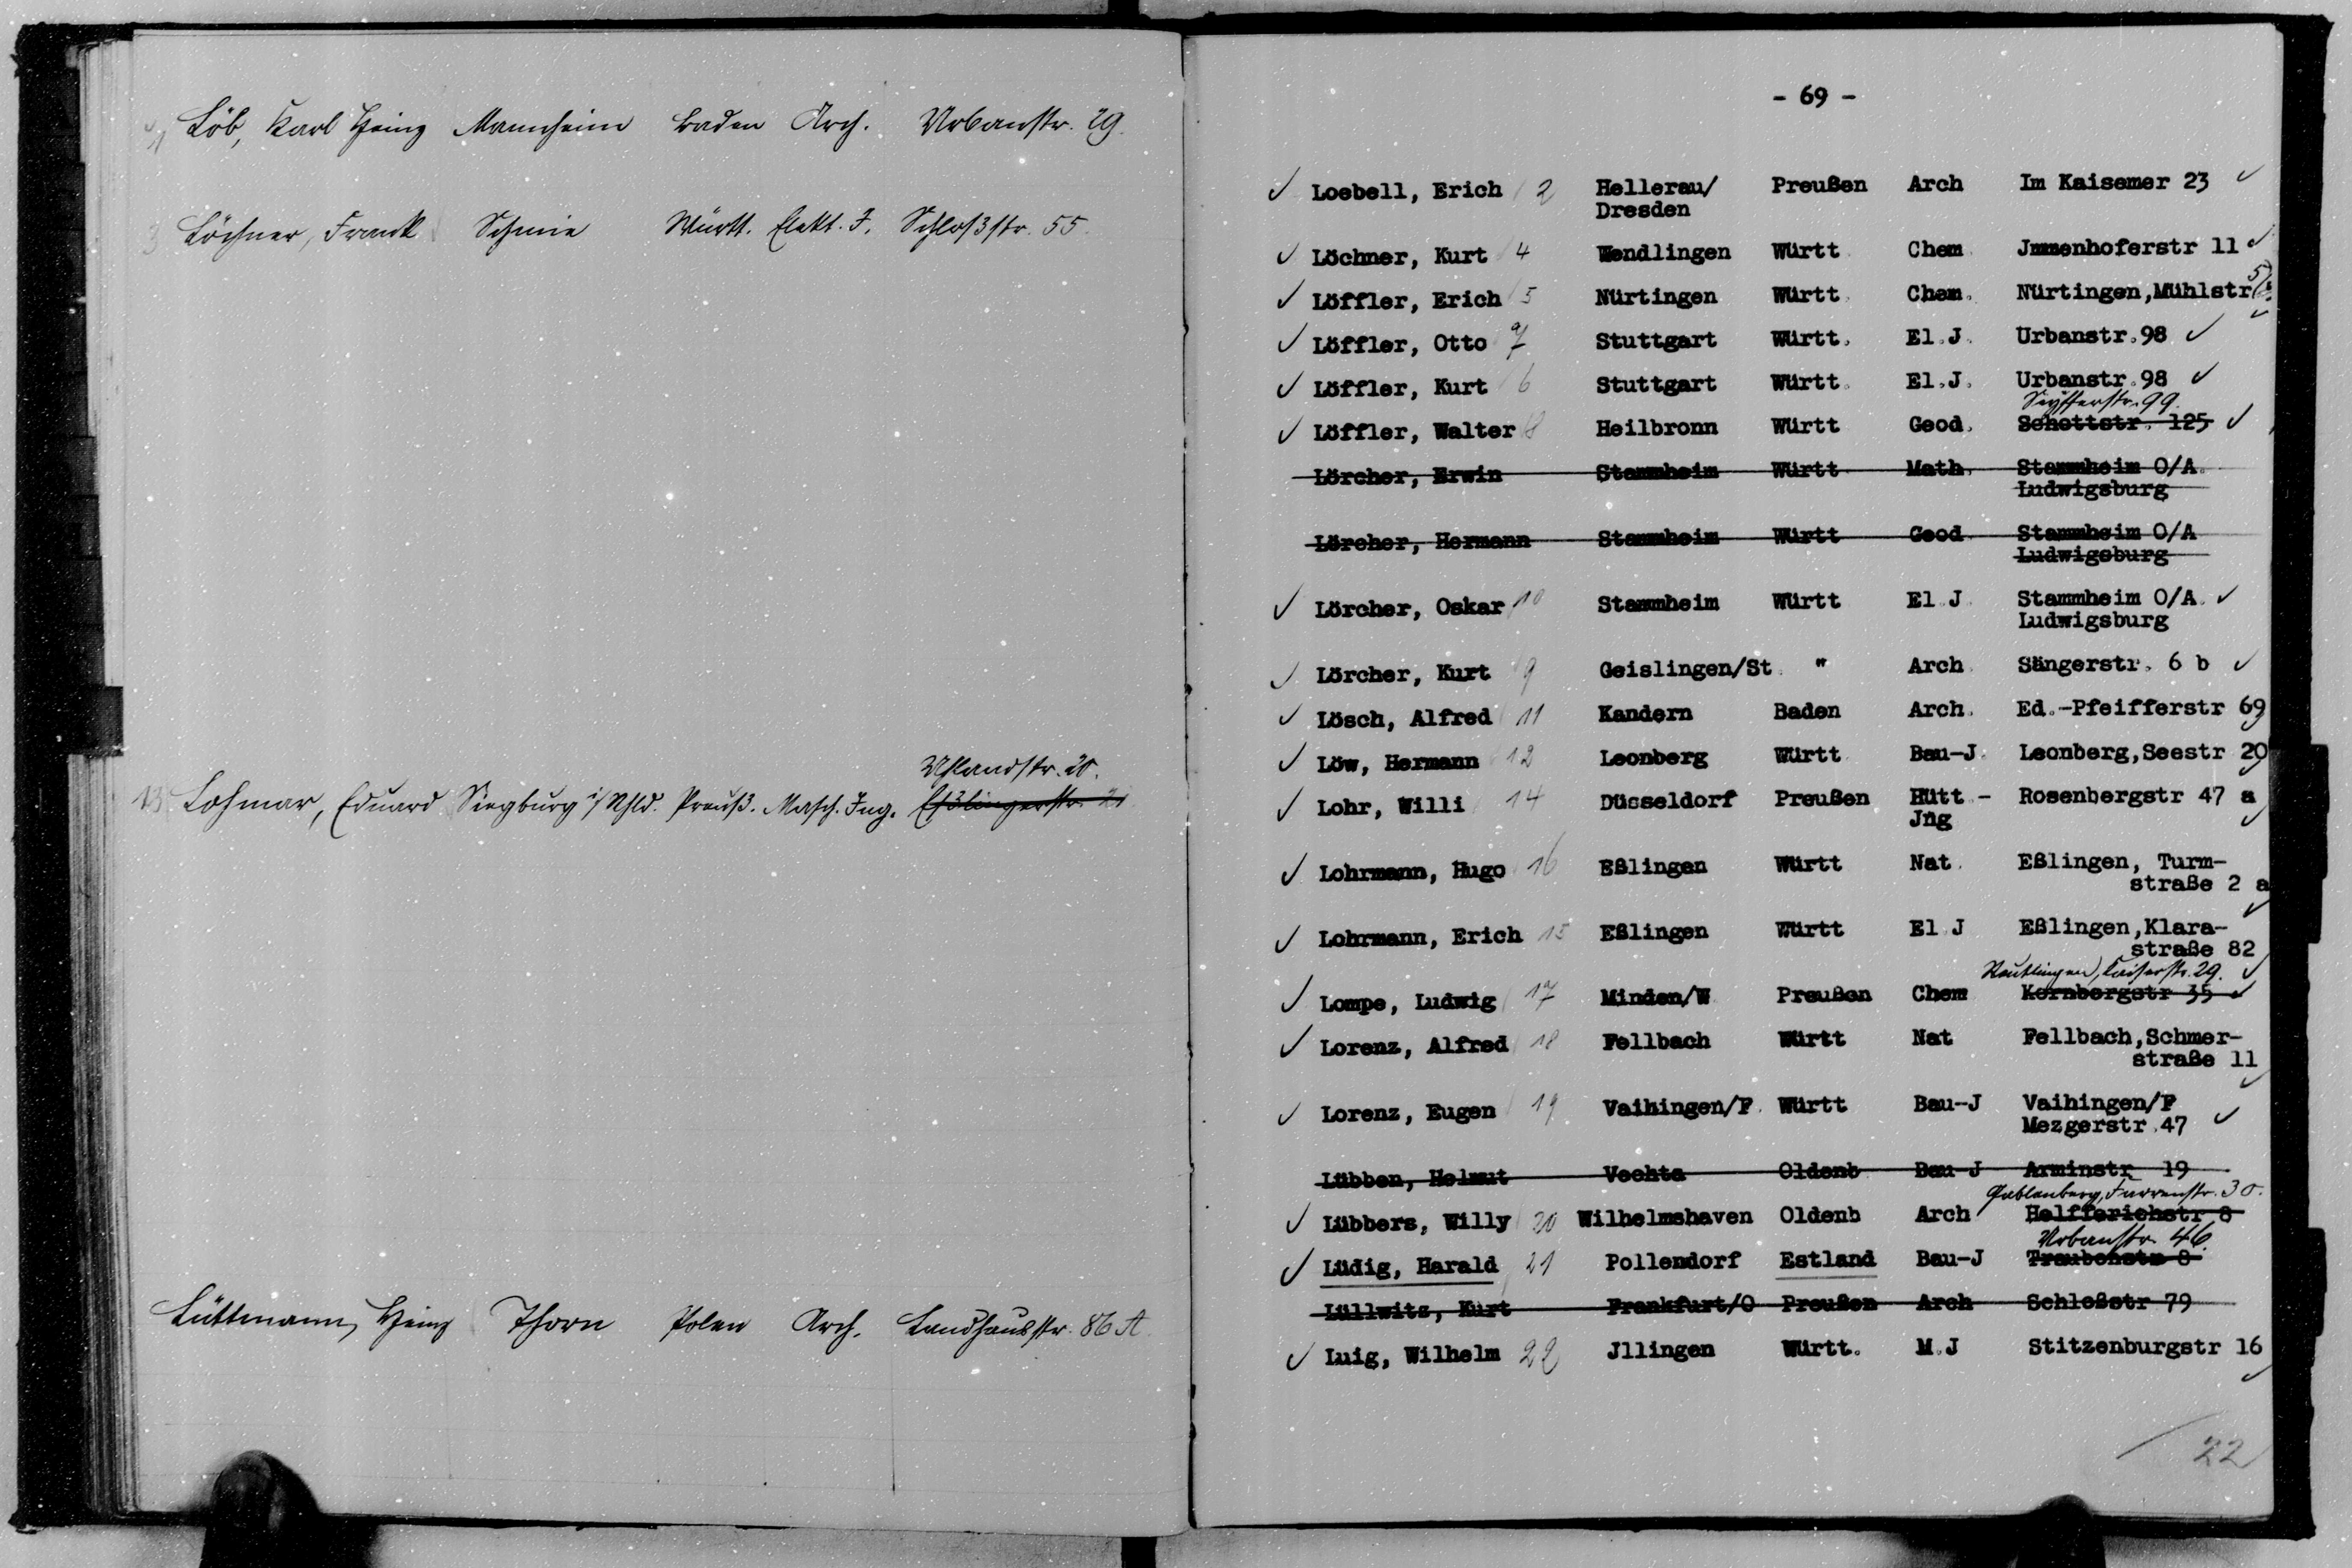 1 Löb, Karl Heinz Mannheim Baden Arch. Urbanstr. 29.
3 Löchner, Frank Schmie Württ. Elekt. J. Schloßstr. 55.
Uhlandstr. 20.
13 Lohmar, Eduard Siegburg i/Rhld. Preuß. Masch. Ing. Eßlingerstr. 21
Lüttmann, Heinz Thorn Polen Arch. Landhausstr. 86 A.
- 69 -
✓ Loebell, Erich 2 Hellerau/ Preußen Arch Im Kaisemer 23 ✓
Dresden
✓ Löchner, Kurt 4 Wendlingen Württ. Chem. Jmmenhoferstr 11 ✓
✓ Löffler, Erich 5 Nürtingen Württ. Chem. Nürtingen,Mühlstr 5 ✓
✓ Löffler, Otto 7 Stuttgart Württ. El.J. Urbanstr.98 ✓
✓ Löffler, Kurt 6 Stuttgart Württ. El.J. Urbanstr.98 ✓
Seyfferstr. 99.
✓ Löffler, Walter 8 Heilbronn Württ Geod. Schottstr. 125 ✓
Lörcher, Erwin Stammheim Württ Math. Stammheim O/A.
Ludwigsburg
Lörcher, Hermann Stammheim Württ Geod. Stammheim O/A
Ludwigsburg
✓ Lörcher, Oskar 10 Stammheim Württ El.J. Stammheim O/A. ✓
Ludwigsburg
✓ Lörcher, Kurt 9 Geislingen/St. " Arch. Sängerstr. 6 b ✓
✓ Lösch, Alfred 11 Kandern Baden Arch. Ed.-Pfeifferstr 69 ✓
✓ Löw, Hermann 12 Leonberg Württ. Bau-J. Leonberg,Seestr 20 ✓
✓ Lohr, Willi 14 Düsseldorf Preußen Hütt.- Rosenbergstr 47 a
Jng ✓
✓ Lohrmann, Hugo 16 Eßlingen Württ Nat. Eßlingen, Turm-
straße 2 a ✓
✓ Lohrmann, Erich 15 Eßlingen Württ El.J Eßlingen,Klara-
straße 82 ✓
Reutlingen, Kaiserstr. 29.
✓ Lompe, Ludwig 17 Minden/W. Preußen Chem Kornbergstr 35 ✓
✓ Lorenz, Alfred 18 Fellbach Württ Nat Fellbach,Schmer-
straße 11 ✓
✓ Lorenz, Eugen 19 Vaihingen/F. Württ Bau-J Vaihingen/F
Mezgerstr.47 ✓
Lübben, Helmut Vechta Oldenb Bau-J Arminstr 19
Gablenberg, Farrenstr. 30.
✓ Lübbers, Willy 20 Wilhelmshaven Oldenb Arch Helfferichstr 8
Urbanstr. 46.
✓ Lüdig, Harald 21 Pollendorf Estland Bau-J Traubenstr 8
Lüllwitz, Kurt Frankfurt/O Preußen Arch Schloßstr 79
✓ Luig, Wilhelm 22 Jllingen Württ. M.J Stitzenburgstr 16 ✓
22